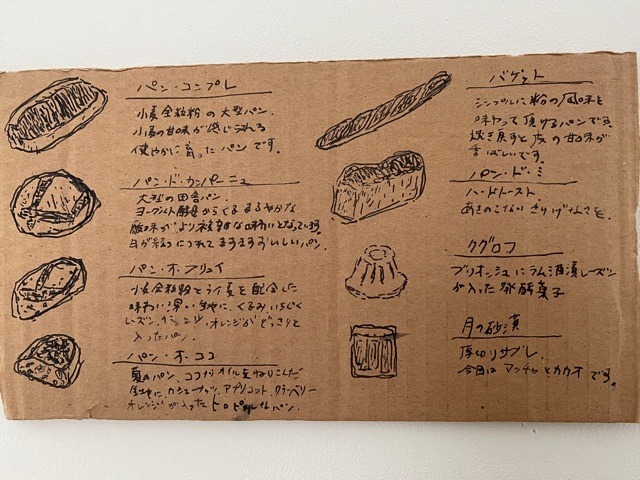 パン・コンプレ
小麦全粒粉の大型パン.
小麦の甘味が感じられる
健やかに育ったパンです.
パン・ド・カンパーニュ
大型の田舎パン
ヨーグルト酵母からくるまろやかな
酸味がより複雑な味わいとなっています
日が経つにつれてますますおいしいパン.
パン・オ・フリュイ
小麦全粒粉とライ麦を配合した
味わい深い生地に、くるみ、いちじく
レーズン、オレンジがどっさりと
入ったパン.
パン・オ・ココ
夏のパン、ココナツオイルをねりこんだ
生地に、カシューナッツ、アプリコット、クランベリー
オレンジが入ったトロピカルなパン.
バゲット
シンプルに粉の風味を
味わって頂けるパンです.
焼き戻すと皮の甘味が
香ばしいです.
パン・ド・ミ
ハードトースト
あきのこない さりげなさを.
クグロフ
ブリオッシュにラム酒漬レーズン
が入った発酵菓子
月の砂漠
厚切りサブレ.
今日は マッチャとカカオ です.